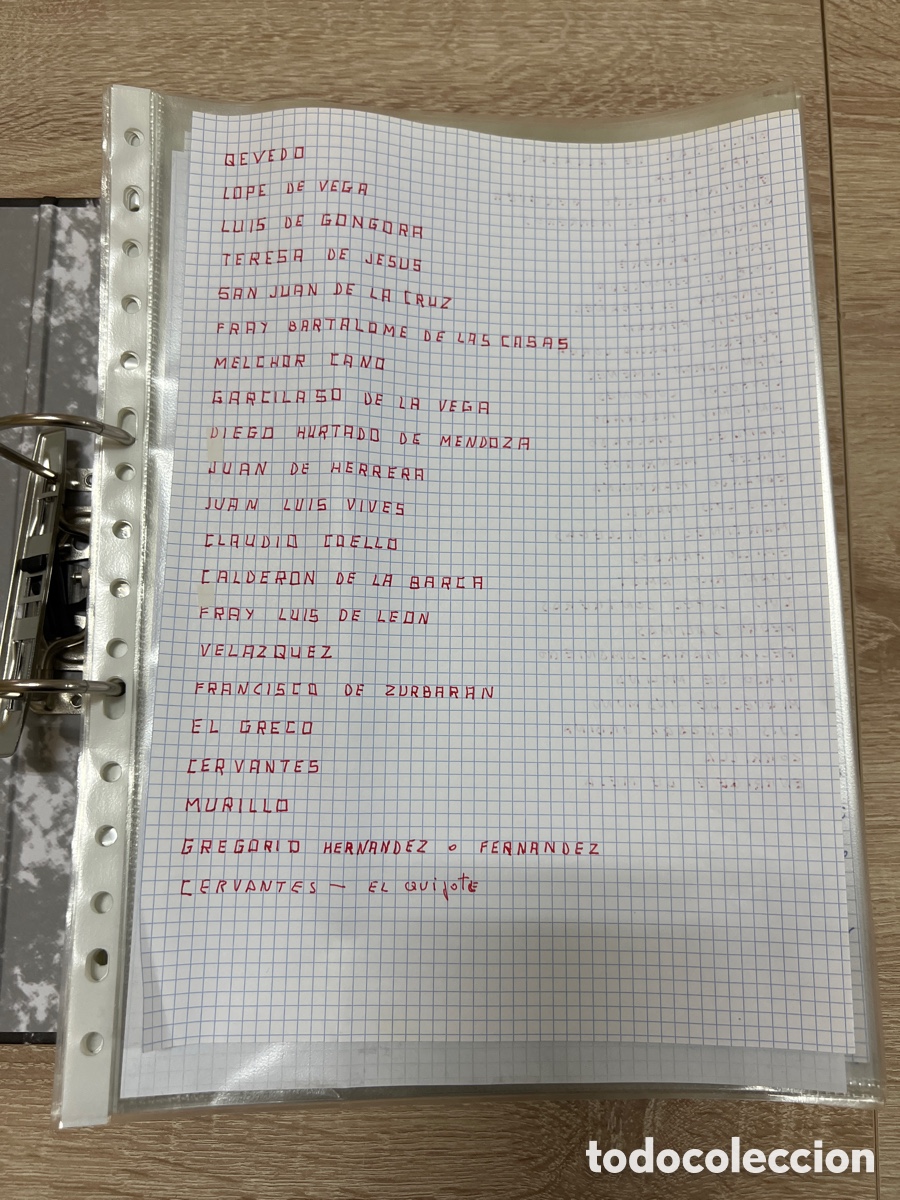 QEVEDO
LOPE DE VEGA
LUIS DE GONGORA
TERESA DE JESUS
SAN JUAN DE LA CRUZ
FRAY BARTALOME DE LAS CASAS
MELCHOR CANO
GARCILASO DE LA VEGA
DIEGO HURTADO DE MENDOZA
JUAN DE HERRERA
JUAN LUIS VIVES
CLAUDIO COELLO
CALDERON DE LA BARCA
FRAY LUIS DE LEON
VELAZQUEZ
FRANCISCO DE ZURBARAN
EL GRECO
CERVANTES
MURILLO
GREGORIO HERNANDEZ o FERNANDEZ
CERVANTES — EL QUijotE
todocoleccion